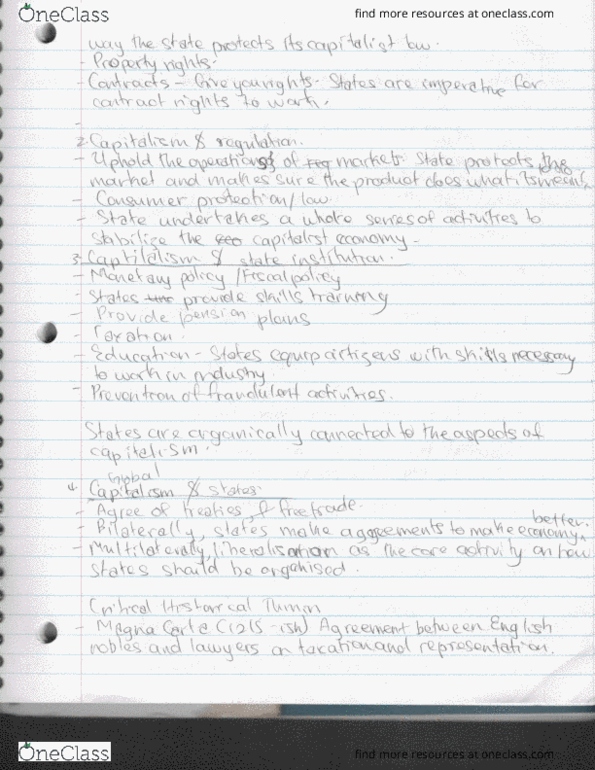 OneClass
find more resources at oneclass.com
way the state protects its capitalist law.
- Property rights.
- Contracts - Give you rights. States are imperative for
contract rights to work.
-
2. Capitalism & regulation.
- Uphold the operations of markets. State protects the
market and makes sure the product does what it's meant.
- Consumer protection/law.
- State undertakes a whole series of activities to
stabilize the capitalist economy.
3. Capitalism & state institution.
- Monetary policy / Fiscal policy
- States provide skills training
- Provide pension plans
- Taxation.
- Education - States equip citizens with skills necessary
to work in industry.
- Prevention of fraudulent activities.
States are organically connected to the aspects of
capitalism.
Global
4. Capitalism & states.
- Agree of treaties & free trade.
better.
- Bilaterally, states make aggreements to make economy
- Multilaterally, liberalisation as the core activity on how
states should be organised.
Critical Historical
- Magna Carta (1215-ish) Agreement between English
nobles and lawyers on taxation and representation.
OneClass
find more resources at oneclass.com